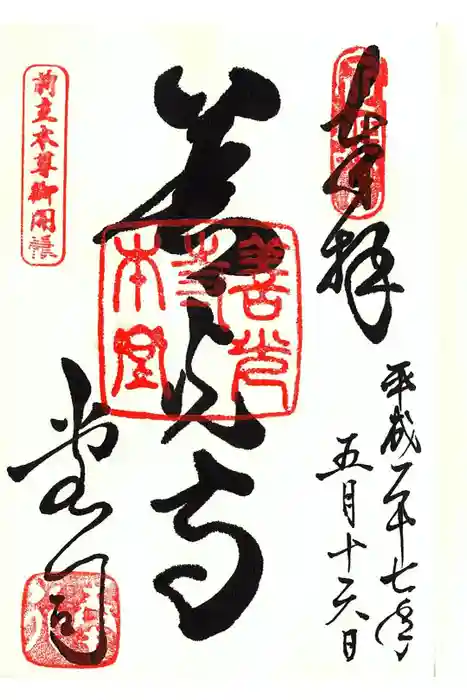 奉拝
平成二十七年
五月十六日
善光寺
善光
寺
本堂
前立本尊御開帳
堂司